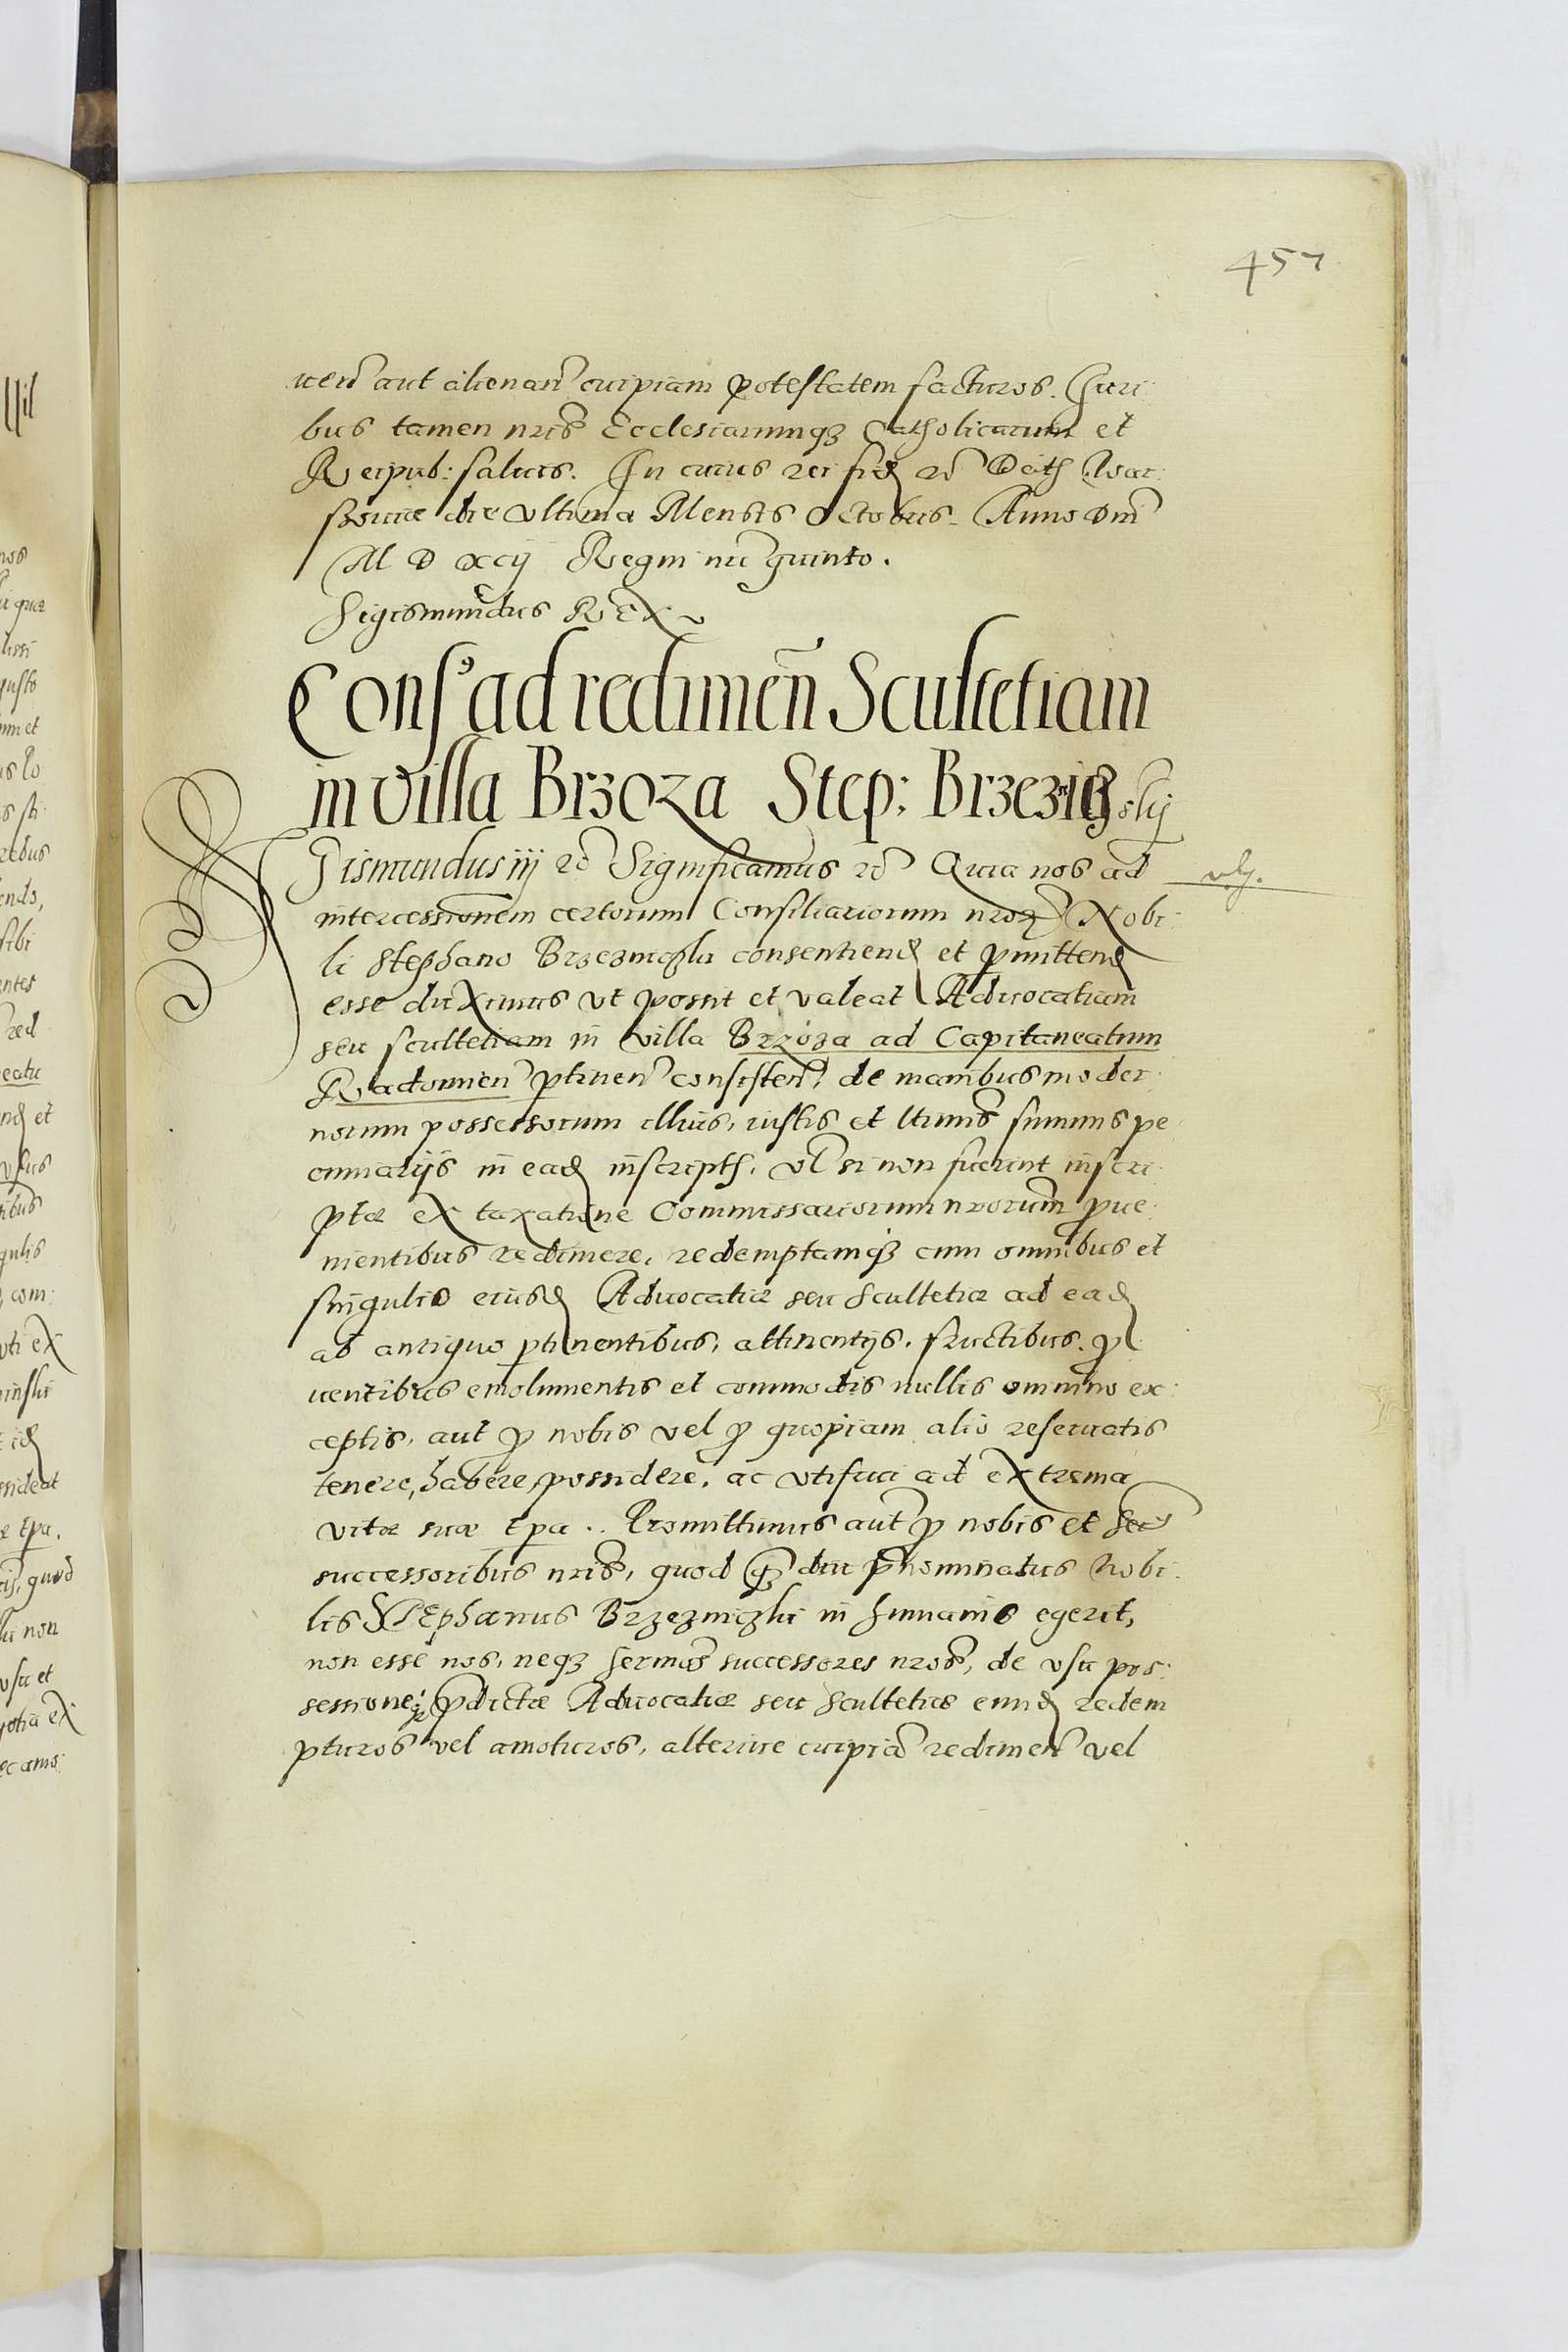 457
uen aut alienan cuipiam potestatem facturos. Juri
bus tamen nris Ecclesiarumq; Catholicarum et
Reipub: saluis. In cuius rei fid etc Dath War
szouiæ die vltima Mensis Octobris. Anno Dni
M D xcij Regni nri quinto.
Sigismundus Rex
Cons ad redimen Scultetiam
in villa Brzoza Step: Brzeznicz slij
Sigismundus iij etc Significamus etc Quia nos ad
vlg.
intercessionem certorum Consiliariorum nror Nobi
li Stephano Brzezniczki consentiend et pmittend
esse duximus vt possit et valeat Aduocatiam
seu scultetiam in villa Brzoza ad Capitaneatum
Radomien ptinen consisten, de manibus moder
norum possessorum illius, iustis et ltimis summis pe
cuniarijs in ead inscriptis, vel si non fuerint inscri
ptæ ex taxatione Commissariorum nrorum proue
nientibus redimere, redemptamq; cum omnibus et
singulis eiusd Aduocatiæ seu Scultetiæ ad ead
ab antiquo ptinentibus, attinentijs, fructibus, pro
uentibus emolumentis et commodis nullis omnino ex
ceptis, aut p nobis vel p quopiam alio reseruatis
tenere, habere, possidere, ac vtifrui ad extrema
vitæ suæ tpa. Promittimus aut p nobis et Ser
successoribus nris, quod q diu pnominatus Nobi
lis Stephanus Brzezniczki in humanis egerit,
non esse nos, neq; Sermos successores nros, de vsu pos
sessione pdictæ Aduocatiæ seu Scultetiæ eund redem
pturos vel amoturos, alteriue cuipia redimen vel